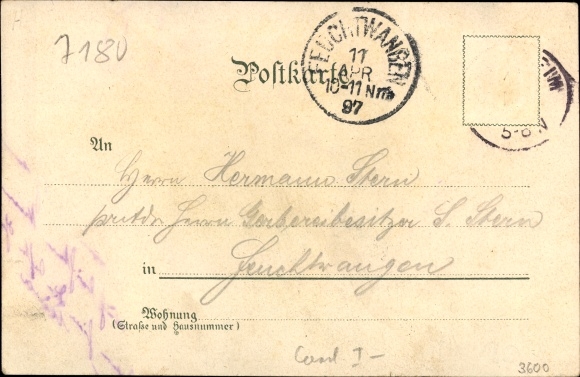 7180
FEUCHTWANGEN
11
APR
10-11 Nm
97
Postkarte
5-6 N
An
Herrn Hermann Stern
Herrn Gerbereibesitzer S. Stern
in Feuchtwangen
Wohnung
(Straße und Hausnummer)
I-
3600